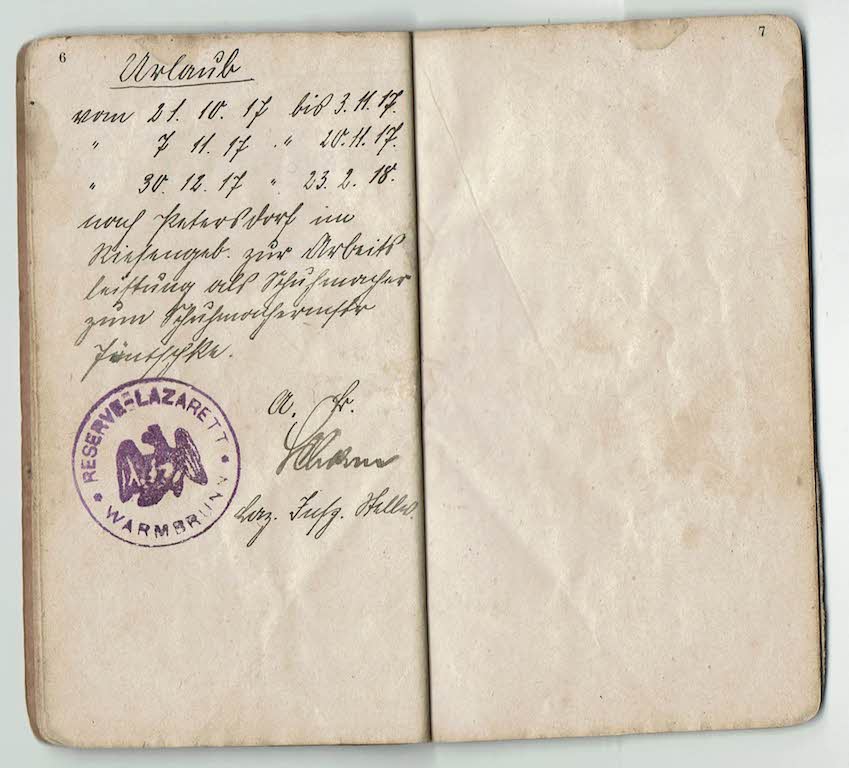 6
Urlaub
vom 21. 10. 17 bis 3. 11. 17.
" 7 11. 17 " 20. 11. 17.
" 30. 12. 17 " 23. 2. 18.
nach Petersdorf im
Riesengeb. zur Arbeits
leistung als Schuhmacher
zum Schuhmachermstr
Jäntschke.
A. B.
Laz. Insp. Stellv.
RESERVE-LAZARETT
WARMBRUNN
7